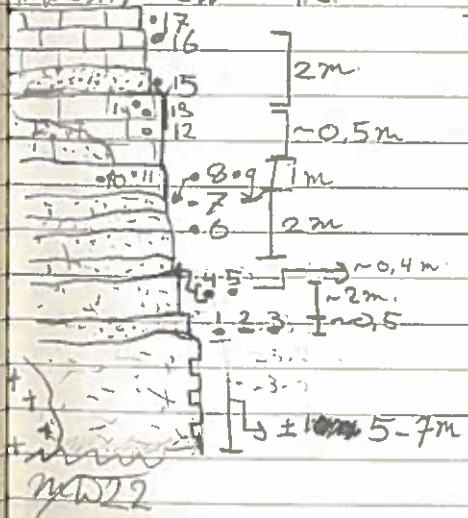 17
16
2m
15
14 13
12
~0,5m
10 11
8 9
1m
7
6
2m
~0,4m
4 5
~2m.
1 2 3
~0,5
± 5-7m
MW22